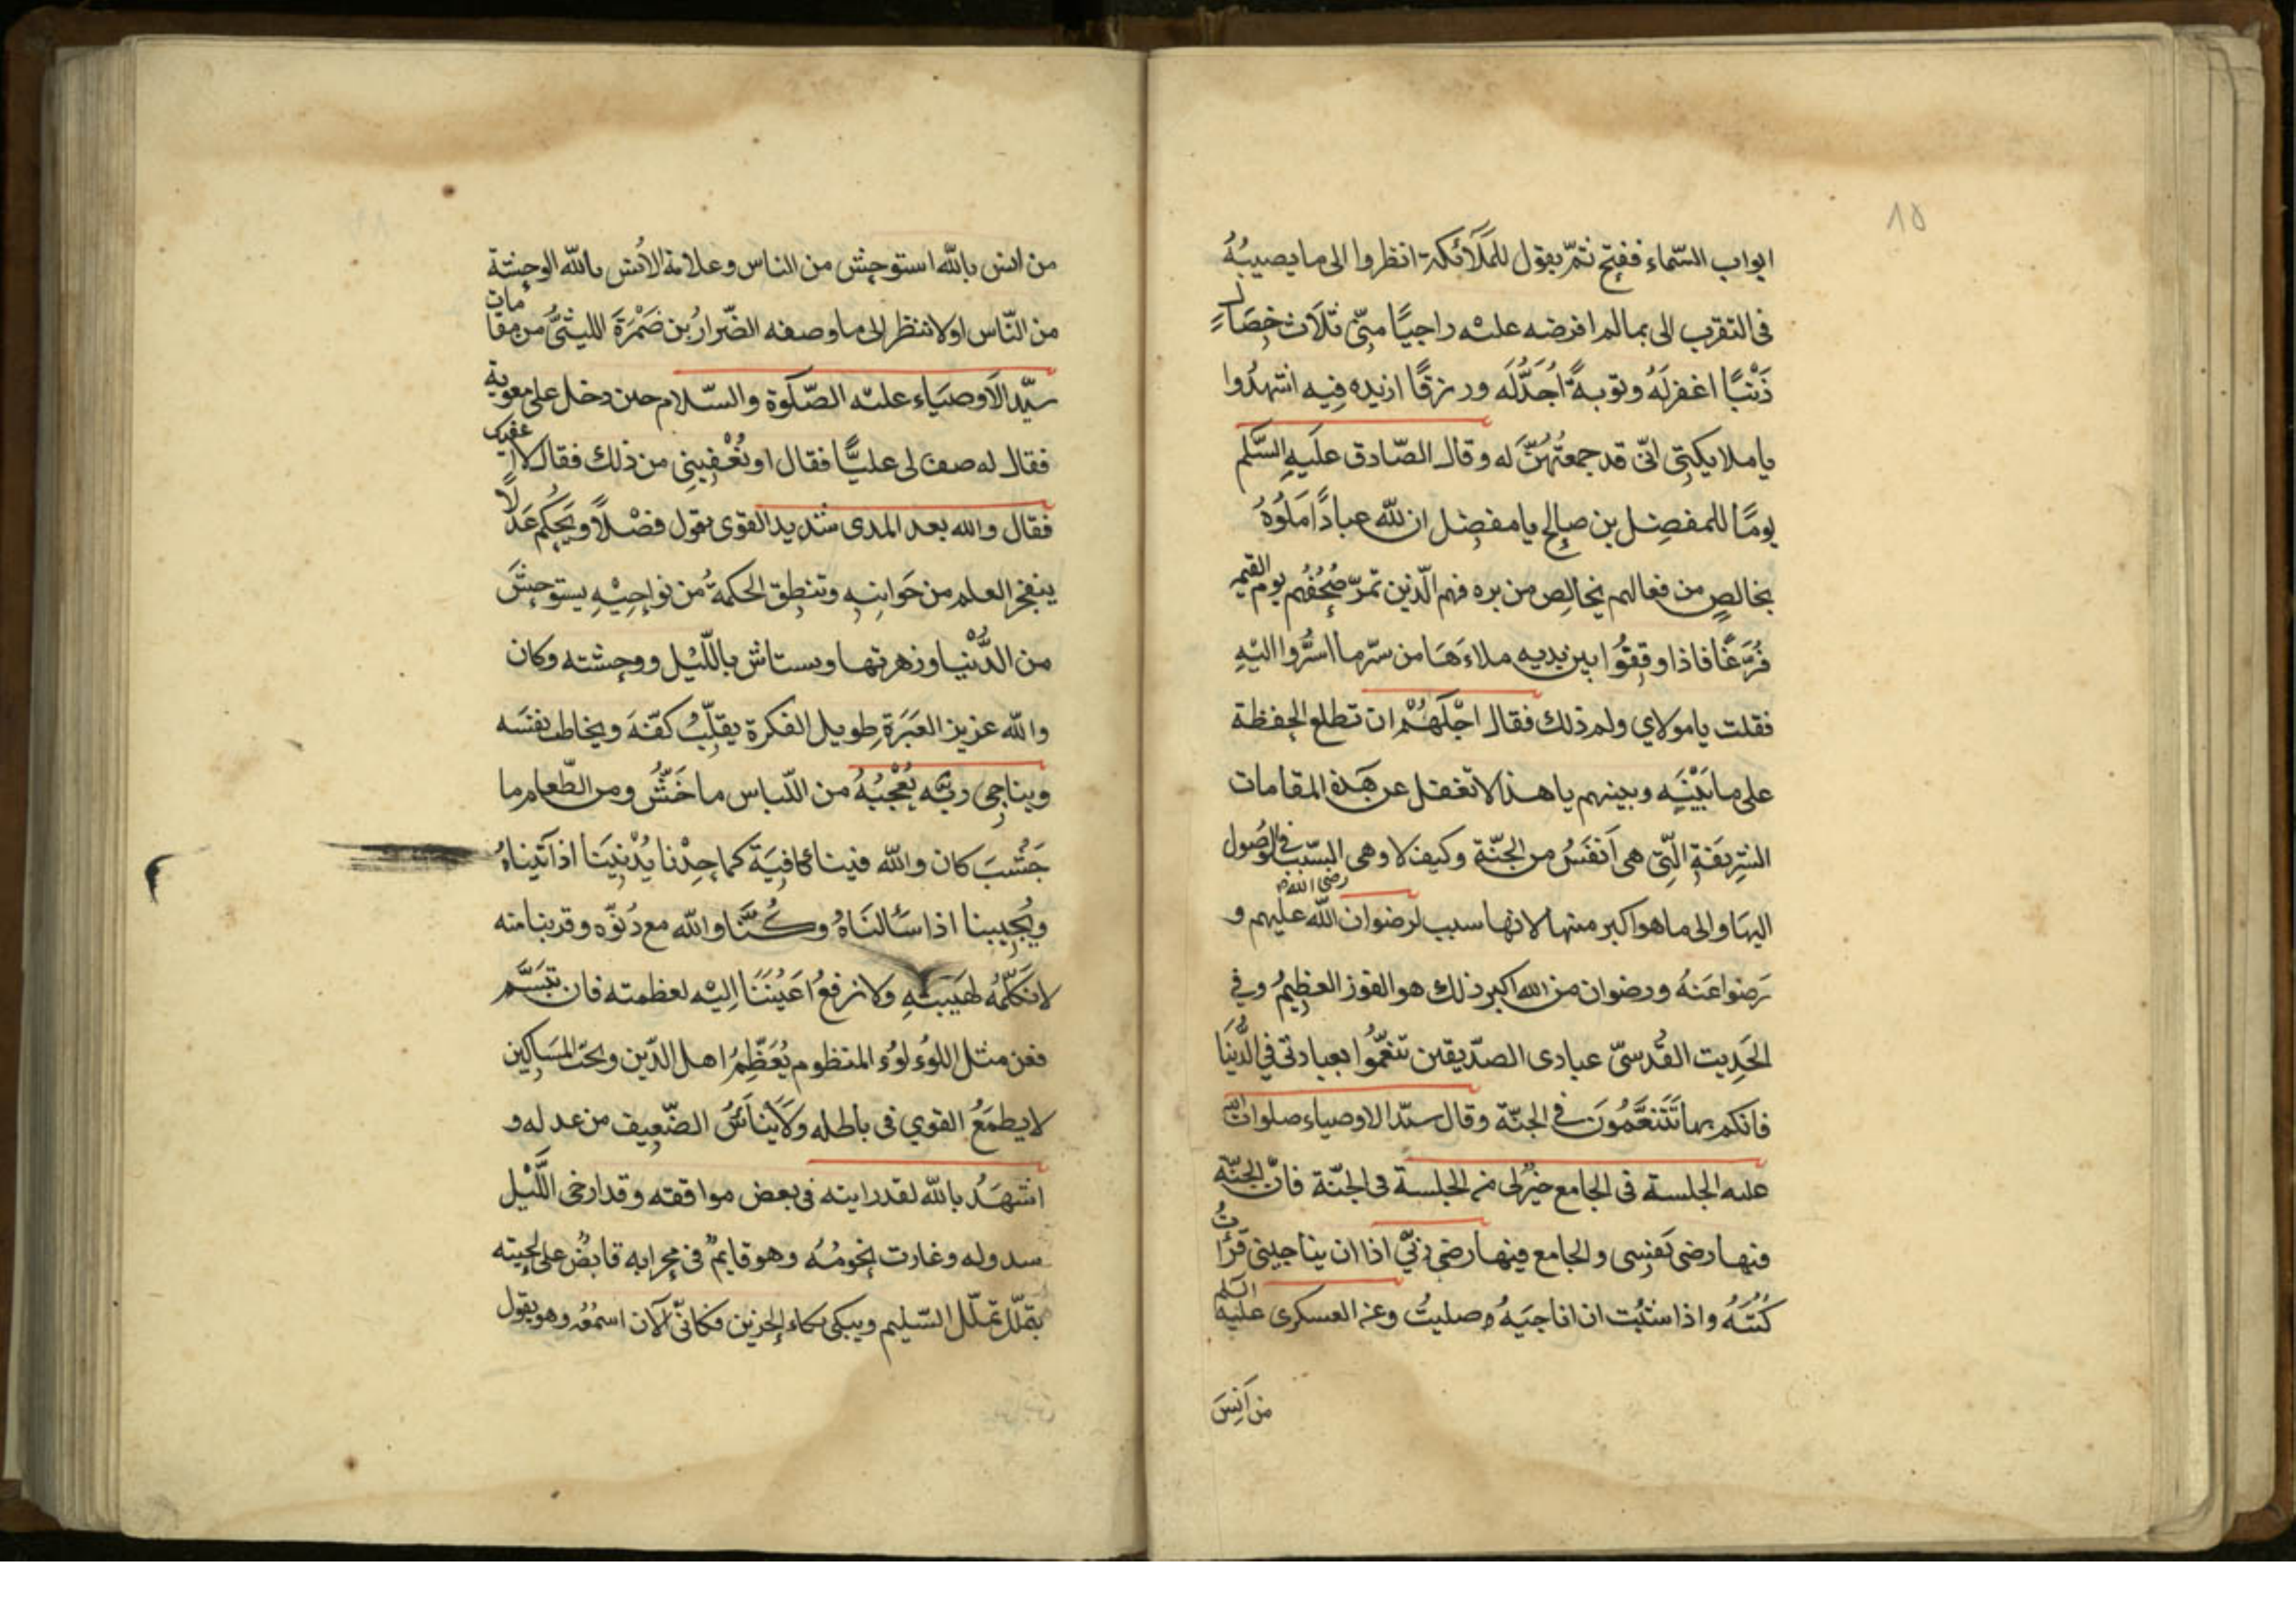 ١٥
ابواب السّماء ففتح ثمّ يقول للمَلَآئكة انظروا الى ما يصيبُهُ
فى التقرب الى بمالم افرضه عليْه راجيًا منّى ثلَاث خِصَالٍ
ذَنْبًا اغفرلَهُ وتوبةً اُجَدّلَه ورزقًا ازيده فِيه اشهدُوا
ياملايكتى انّى قد جمعتُهُنَّ له وقال الصّادق علَيهِ السَّلم
يومًا للمفضِل بن صالح يا مفضِل ان للّه عبادًا مَلَوُهُ
بخالصٍ من فعالهم بخالِص من بره فهم الّذين تمرّ صُحُفُهم يوم القيمة
فُرَّغًا فاذا وقفوُا بين يديه ملاءَهَا من سرّ ما اسرُّوا اليْهِ
فقلت يا مولاي ولم ذلك فقال اجْلَهُمْ ان تطلع الحفظة
على ما بَيْنَه وبينهم يا هذا لا تغفل عن هَذهِ المقامات
الشرِيفَةِ الّتى هى اَنفَسُ من الجنّة وكيف لا وهى السّبب فى الوصُول
اليهَا والى ما هو اكبر منها لانها سبب لرضوان اللّه عليهم و
رضى الله
رَضوا عَنهُ ورضوان من الله اكبر ذلك هو الفوز العظيمُ وفى
الحَدِيث القُدسىّ عبادى الصدّيقين تنعّموُا بعبادتى فى الدُّنيَا
فانكم بها تَتَنعَّمُونَ فى الجنّة وقال سيّد الاوصياء صلوات الله
عليه الجلسة فى الجامع خيرٌلى من الجلسة فى الجنّة فانّ الجنّة
فيها رضى نفسِى والجامع فيها رضى ربّى اذا ان يناجينى قرَاتُ
كُتبَهُ واذا شئتُ ان اناجيَهُ صليتُ وعن العسكرى عليه السلم
من اَنِسَ
من انس باللّه استوحش من الناس وعلامة الاُنس باللّه الوحشة
من النّاس اولا تنظر الى ما وصفه الضّرارُ بن ضَمْرَةَ الليثىُّ من مقامات
سيّد الاَوصيَاء عليْه الصّلَوة والسّلام حين دخل على معوية
فقال له صف لى عليًّا فقال اوتُعْفِينى من ذلك فقال لا اعفيك
فقال والله بعيد المدى شديد القوى يقول فضْلاً ويَحكم عَدلًا
ينفجر العلم من جَوانِبِه وتنطِق الحكمةُ من نواحِيْهِ يستوحِشَ
من الدُّنْيا وزهرتها ويستانس باللّيْل ووحشته وكان
واللّه غزيز العَبَرَةِ طويل الفكرة يقلّبُ كفّهَ ويخاطب نفسَه
ويناجى ربّه يُعْجُبُهُ من اللّباس ما خَشُنَ ومن الطّعام ما
جَشُبَ كان واللّه فينا كافِيَةَ كما حِدْنا يُدْنِينَا اذا آتيناهُ
ويُجيبنا اذا سَألنَاهُ وكُنَّا واللّه مع دُنوّه وقربنا منه
لا نكَلّمُه لهَيبتِهِ ولا نرفعُ اَعيُننَا اِليْه لعظمته فان تبسَّم
فعن مثل اللوُء لوُء المنظوم يُعَظّمُ اهل الدّين ويحبّ المسَاكين
لا يطمَعُ القوي فى باطله ولَا ينَاَسُ الضّعِيف من عدله و
اشهَدُ باللّه لقد رايته فى بعض مواقفه وقد ارخى اللَّيْل
سدوله وغارت نجومُه وهو قايمٌ فى محرابه قابضٌ على لحيته
يتملّل تملّل السّليم ويبكى بكاء الحزين فكانّى الآن اسمعُه وهو يقول